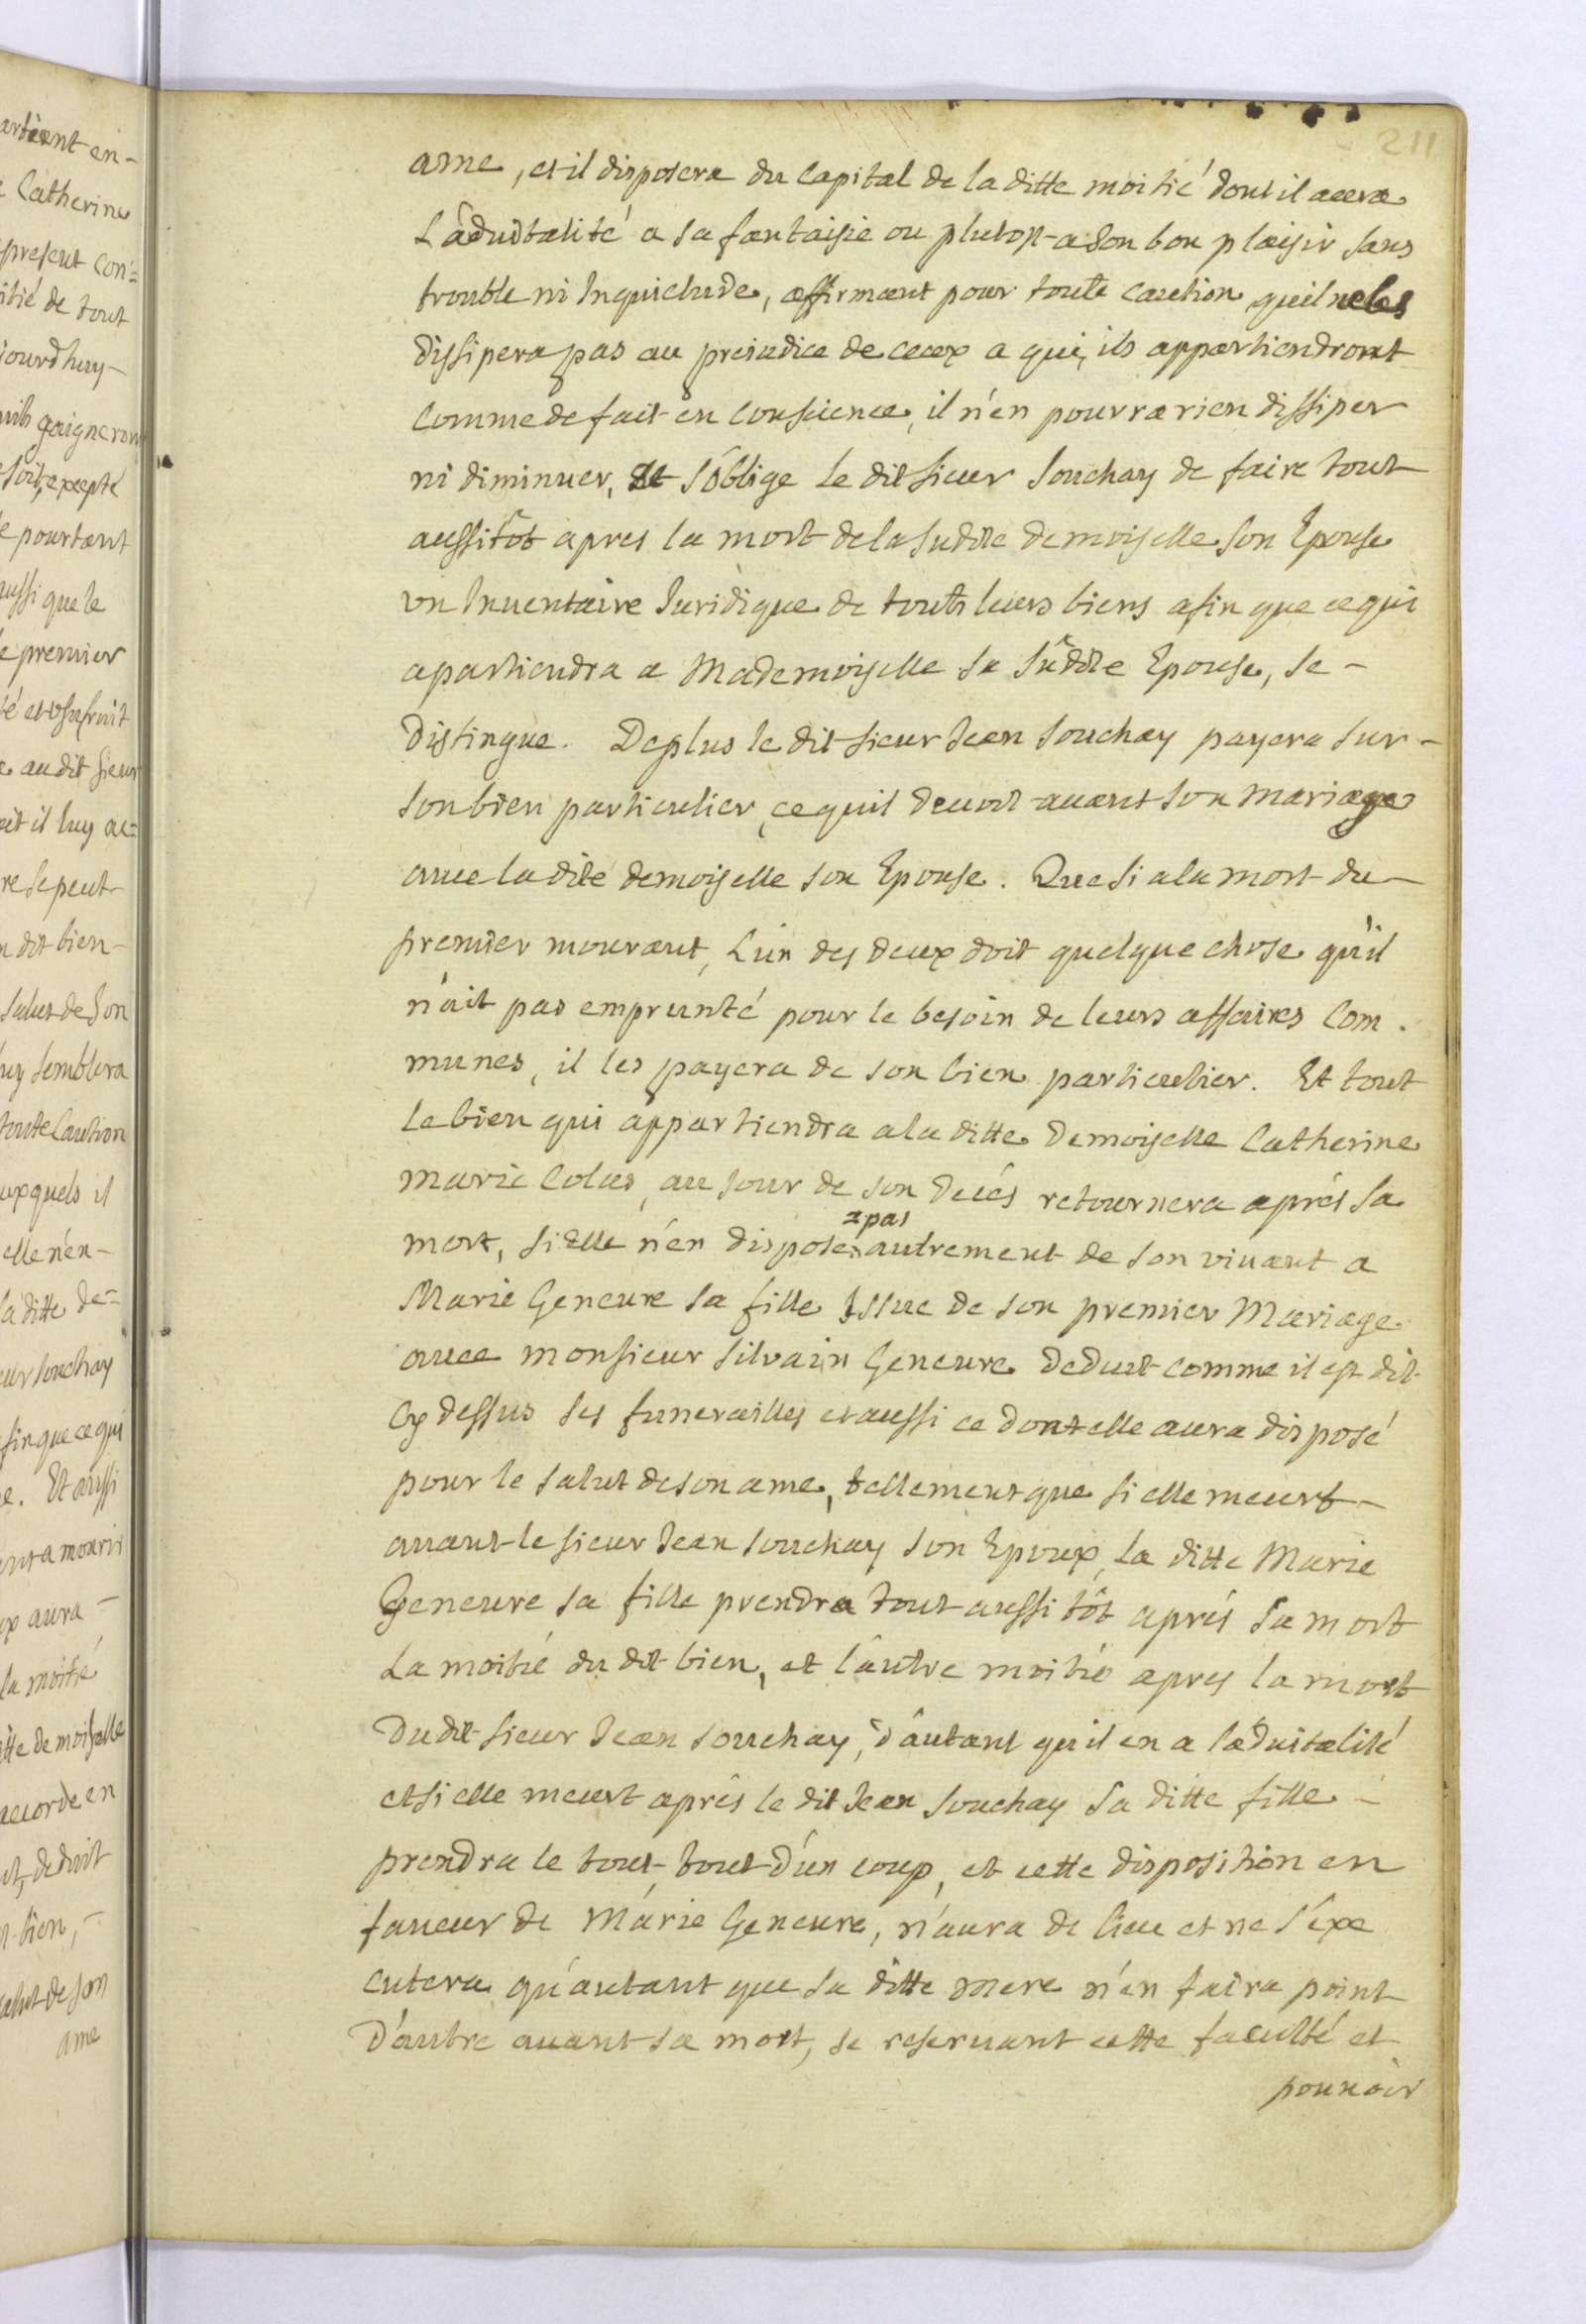 211
ame, et il disposera du Capital de la ditte moitié dont il aura
L'advitalité a sa fantaisie ou plutost a son bon plaisir sans
trouble ni Inquietude, affirmant pour toute caution quil ne les
dissipera pas au prejudice de ceux a qui, ils appartiendront
Comme de fait en Conscience, il n'en pourra rien dissiper
ni diminuer, Et s'oblige le dit sieur Souchay de faire tout
aussitôt apres la mort de la sudite demoiselle son Epouse
vn Inventaire Juridique de touts leurs biens afin que ce qui
apartiendra a Mademoiselle sa sudite Epouse, se -
distingue. De plus le dit sieur Jean Souchay payera sur -
son bien particulier, ce quil devoit avant son mariage
avec la dite demoiselle son Epouse. Que si a la mort du -
premier mourant, L'un des deux doit quelque chose qu'il
n'ait pas emprunté pour le besoin de leurs affaires Com.
munes, il les payera de son bien particulier. Et tout
le bien qui appartiendra a la ditte Demoiselle Catherine
Marie Colas, au Jour de son Decés retournera aprés sa
mort, si Elle n'en dispose pas autrement de son vivant a
Marie Geneure sa fille Issue de son premier Mariage
avec monsieur Silvain Geneure Deduit comme il est dit
Cy dessus ses funerailles et aussi ce dont elle aura disposé
pour le salut de son ame, tellement que si elle meurt -
avant le sieur Jean Souchay son Epoux, La ditte Marie
Geneure sa fille prendra tout aussi tôt aprés sa mort
La moitié du dit bien, et l'autre moitié apres la mort
Du dit sieur Jean Souchay, d'autant qu'il en a l'advitalité
et si elle meurt aprês le dit Jean Souchay sa ditte fille -
prendra le tout, tout d'un coup, et cette disposition en
faveur de Marie Geneure, n'aura de lieu et ne s'exe
cutera qu'autant que sa ditte mere n'en faira point
D'autre avant sa mort, se reservant cette faculté et
pouvoir